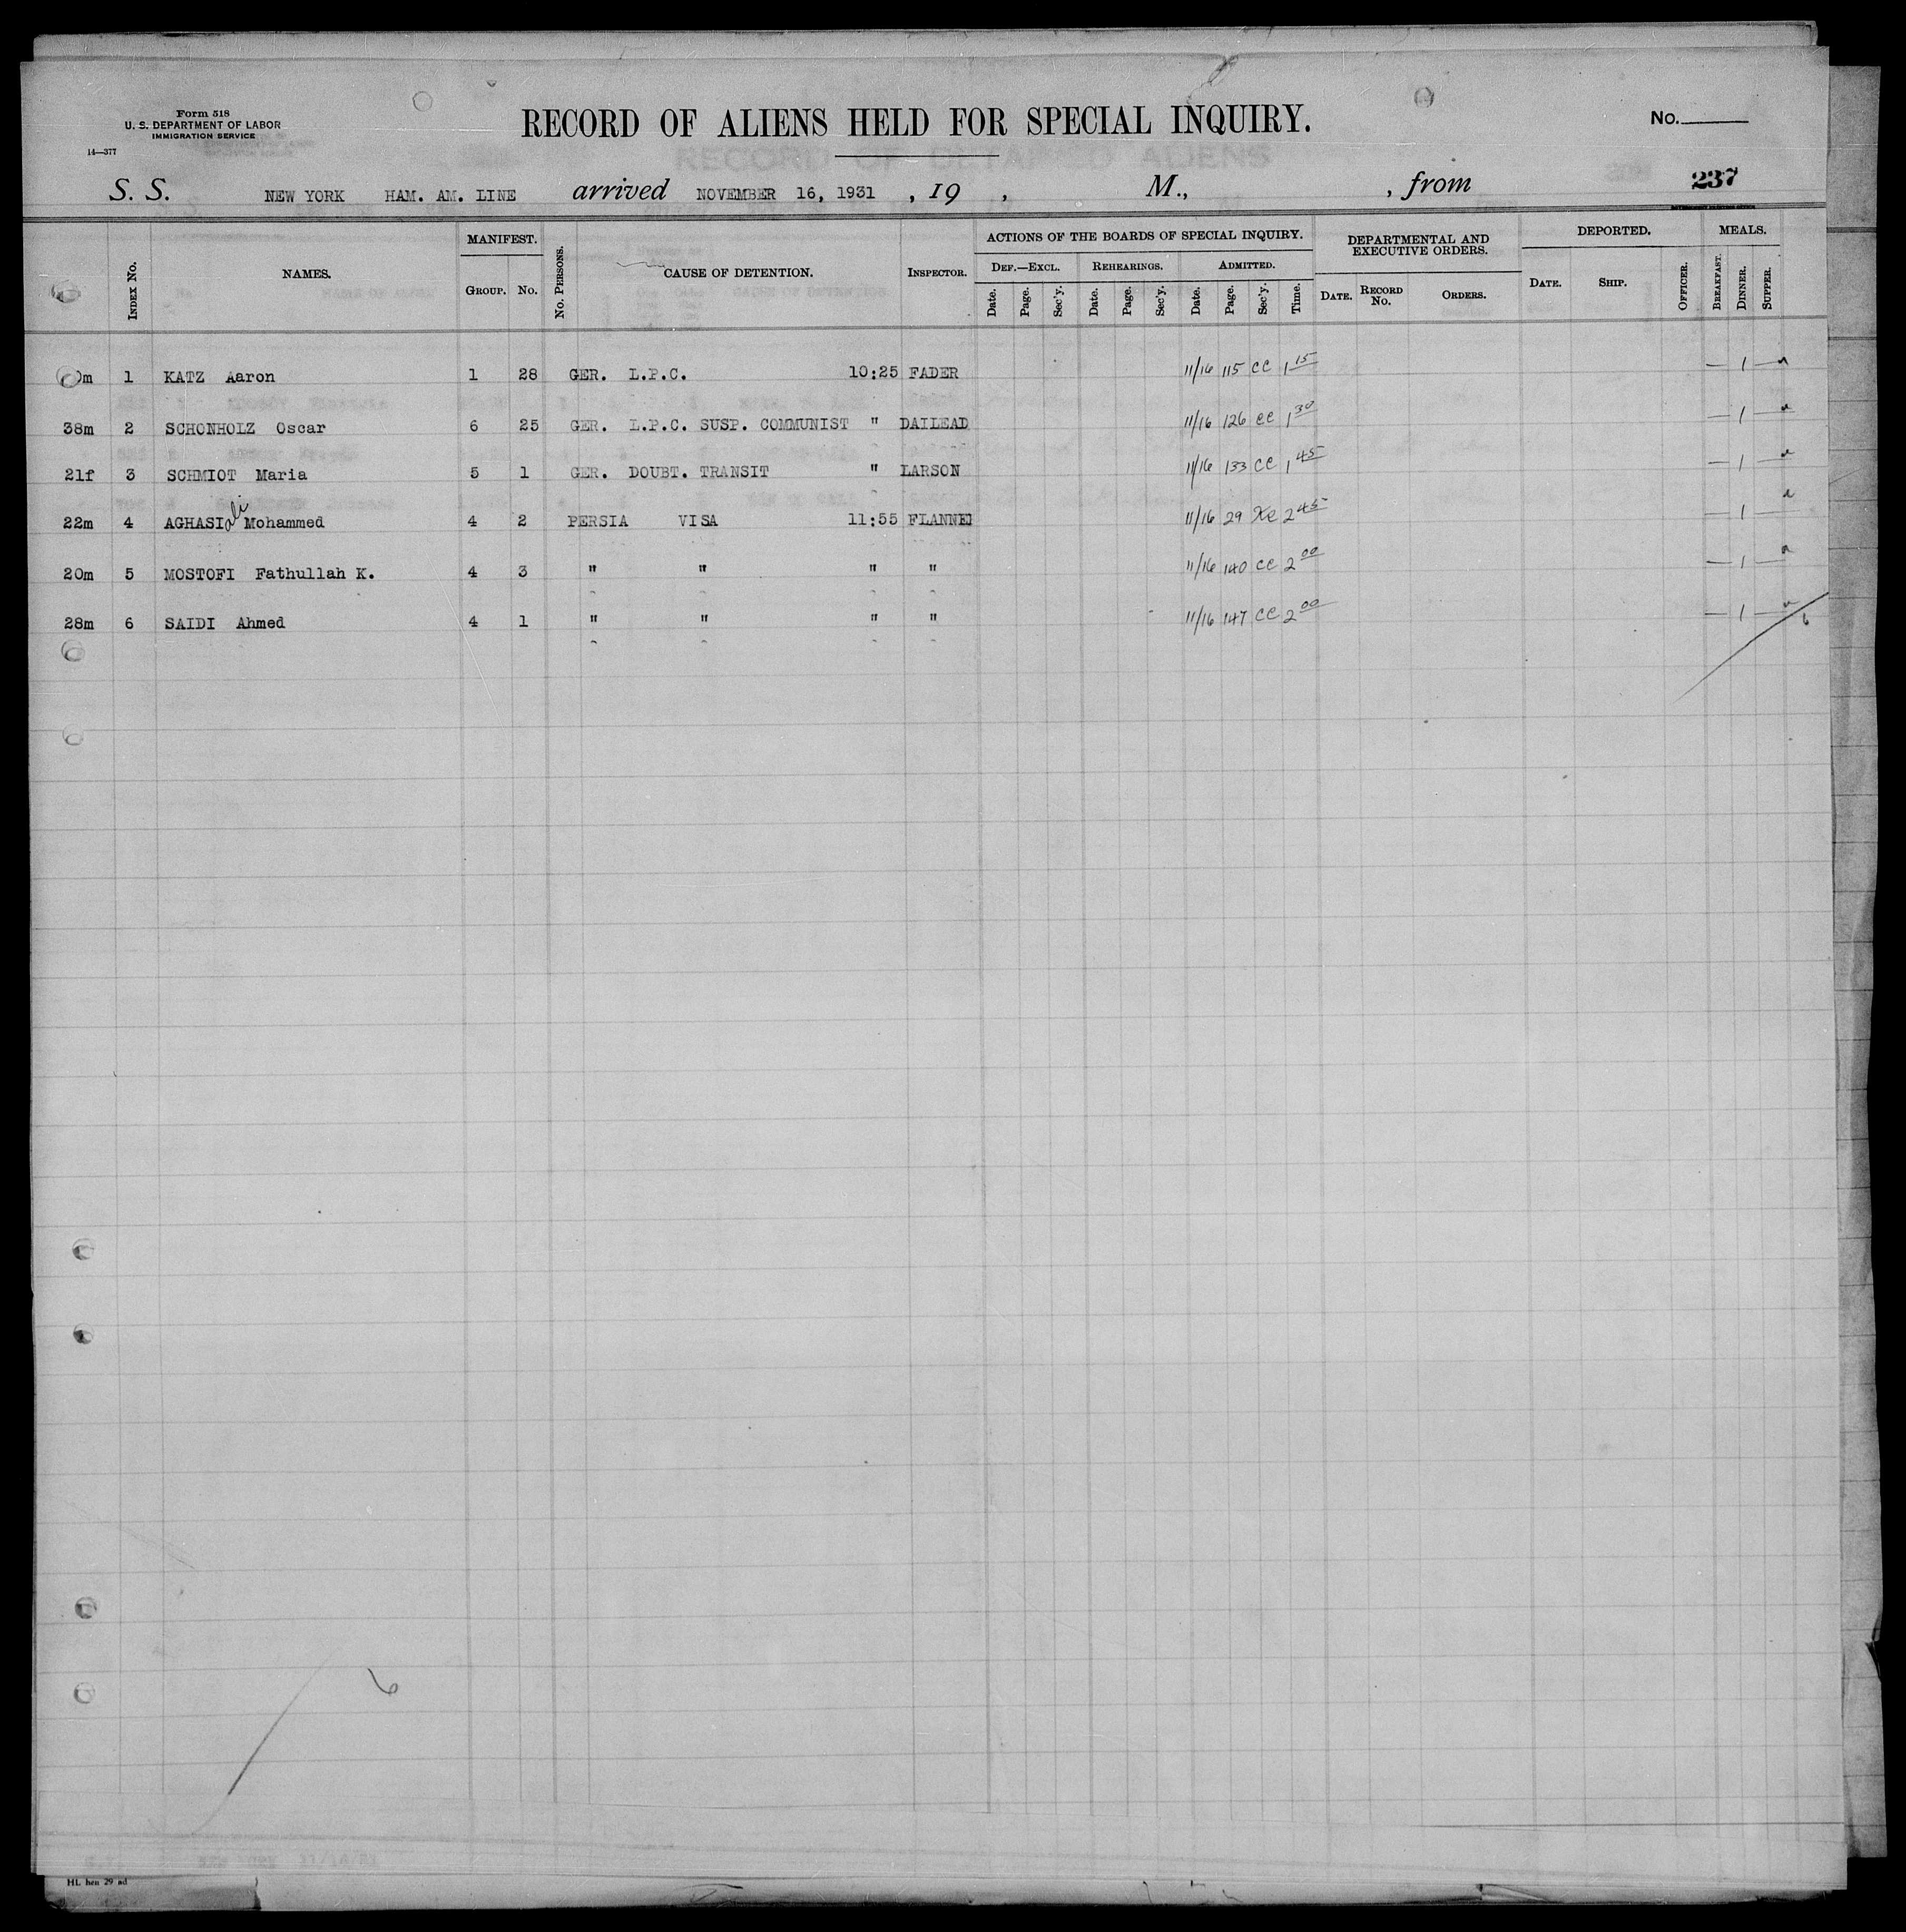 Form 518
U. S. DEPARTMENT OF LABOR
IMMIGRATION SERVICE
14—377
RECORD OF ALIENS HELD FOR SPECIAL INQUIRY.
No.
S. S. NEW YORK HAM. AM. LINE arrived NOVEMBER 16, 1931 , 19 , M., , from 237
INDEX No. NAMES. MANIFEST. GROUP. No. No. PERSONS. CAUSE OF DETENTION. INSPECTOR. ACTIONS OF THE BOARDS OF SPECIAL INQUIRY. DEF.—EXCL. Date. Page. Sec'y. REHEARINGS. Date. Page. Sec'y. ADMITTED. Date. Page. Sec'y. Time. DEPARTMENTAL AND EXECUTIVE ORDERS. DATE. RECORD No. ORDERS. DEPORTED. DATE. SHIP. OFFICER. MEALS. BREAKFAST. DINNER. SUPPER.
m 1 KATZ Aaron 1 28 GER. L.P.C. 10:25 FADER 11/16 115 CC 1 15 — 1 —
38m 2 SCHONHOLZ Oscar 6 25 GER. L.P.C. SUSP. COMMUNIST " DAILEAD 11/16 126 CC 1 30 — 1 —
21f 3 SCHMIOT Maria 5 1 GER. DOUBT. TRANSIT " LARSON 11/16 133 CC 1 45 — 1 —
22m 4 AGHASI ali Mohammed 4 2 PERSIA VISA 11:55 FLANNE 11/16 29 2 45 — 1 —
20m 5 MOSTOFI Fathullah K. 4 3 " " " " 11/16 140 CC 2 00 — 1 —
28m 6 SAIDI Ahmed 4 1 " " " " 11/16 147 CC 2 00 — 1 —
6
6
HL hen 29 ad